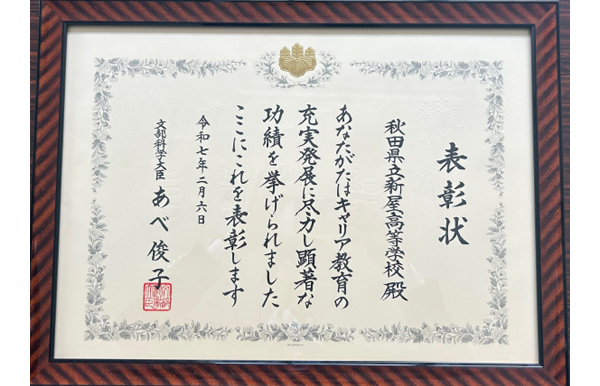 表彰状
秋田県立新屋高等学校 殿
あなたがたはキャリア教育の
充実発展に尽力し顕著な
功績を挙げられました
ここにこれを表彰します
令和七年二月六日
文部科学大臣 あべ俊子